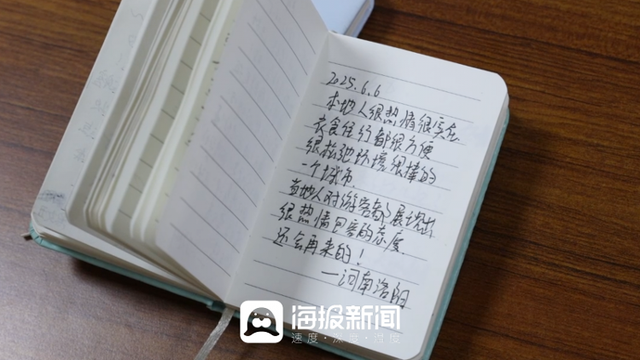 2025.6.6
本地人很热情很实在
衣食住行都很方便
很松弛环境很棒的
一个城市.
当地人对游客都展现出
很热情可亲的态度
还会再来的！
—河南洛阳
海报新闻
速度·深度·温度